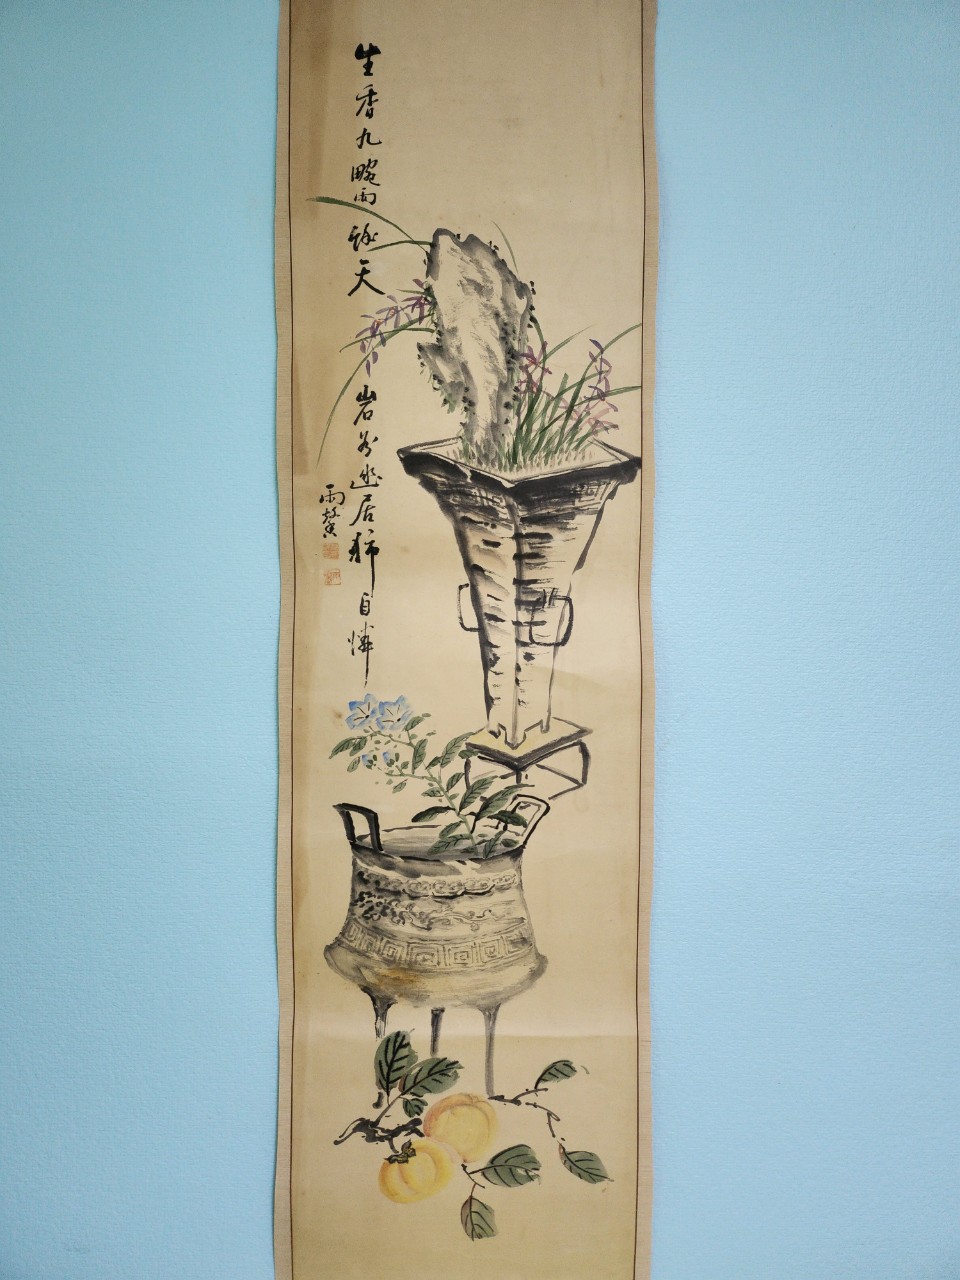 生香九畹雨餘天岩谷幽居稱自憐
雨馨